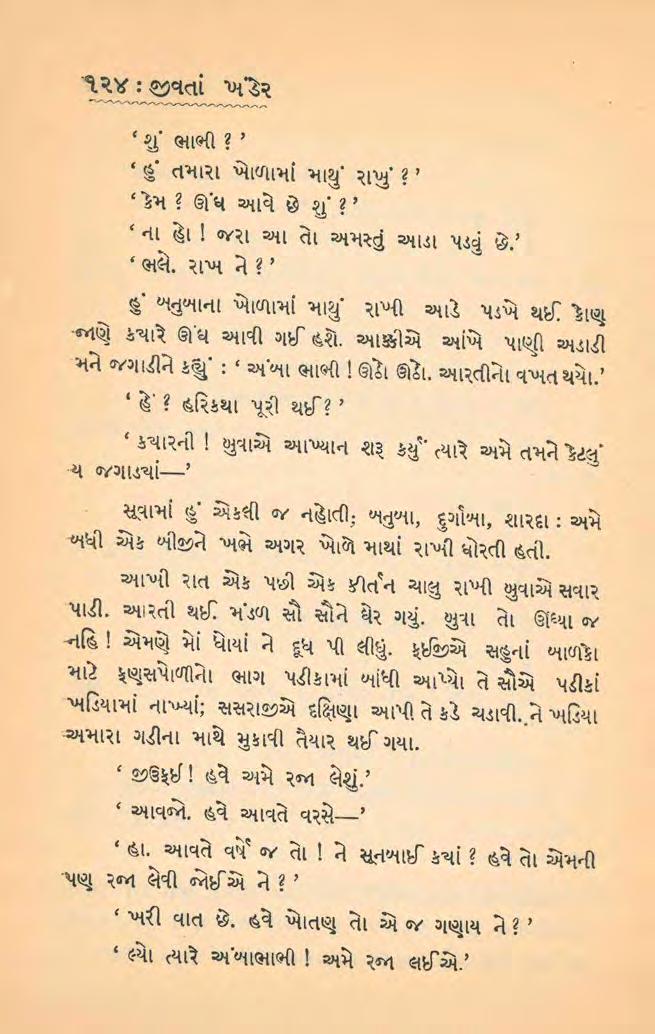 ૧૨૪ : જીવતાં ખંડેર
‘ શું ભાભી ? ’
‘ હું તમારા ખોળામાં માથું રાખું ? ’
‘ કેમ ? ઊંઘ આવે છે શું ? ’
‘ ના હો ! જરા આ તો અમસ્તું આડા પડવું છે.’
‘ ભલે. રાખ ને ? ’
હું બનુબાના ખોળામાં માથું રાખી આડે પડખે થઈ. કોણ
જાણે ક્યારે ઊંઘ આવી ગઈ હશે. આક્કીએ આંખે પાણી અડાડી
મને જગાડીને કહ્યું : ‘ અંબા ભાભી ! ઊઠો ઊઠો. આરતીનો વખત થયો.’
‘ હેં ? હરિકથા પૂરી થઈ ? ’
‘ ક્યારની ! બુવાએ આખ્યાન શરૂ કર્યું ત્યારે અમે તમને કેટલું
ય જગાડ્યાં—’
સૂવામાં હું એકલી જ નહોતી; બનુબા, દુર્ગાબા, શારદા : અમે
બધી એક બીજીને ખભે અગર ખોળે માથાં રાખી ઘોરતી હતી.
આખી રાત એક પછી એક કીર્તન ચાલુ રાખી બુવાએ સવાર
પાડી. આરતી થઈ. મંડળ સૌ સૌને ઘેર ગયું. બુવા તો ઊંઘ્યા જ
નહિ ! એમણે મોં ધોયાં ને દૂધ પી લીધું. ફઈજીએ સહુનાં બાળકો
માટે ફણસપોળીનો ભાગ પડીકામાં બાંધી આપ્યો તે સૌએ પડીકાં
ખડિયામાં નાખ્યાં; સસરાજીએ દક્ષિણા આપી તે કડે ચડાવી. ને ખડિયા
અમારા ગડીના માથે મુકાવી તૈયાર થઈ ગયા.
‘ જીઉફઈ ! હવે અમે રજા લેશું.’
‘ આવજો. હવે આવતે વરસે—’
‘ હા. આવતે વર્ષે જ તો ! ને સૂનબાઈ ક્યાં ? હવે તો એમની
પણ રજા લેવી જોઈએ ને ? ’
‘ ખરી વાત છે. હવે ખોતણ તો એ જ ગણાય ને ? ’
‘ લ્યો ત્યારે અંબાભાભી ! અમે રજા લઈએ.’